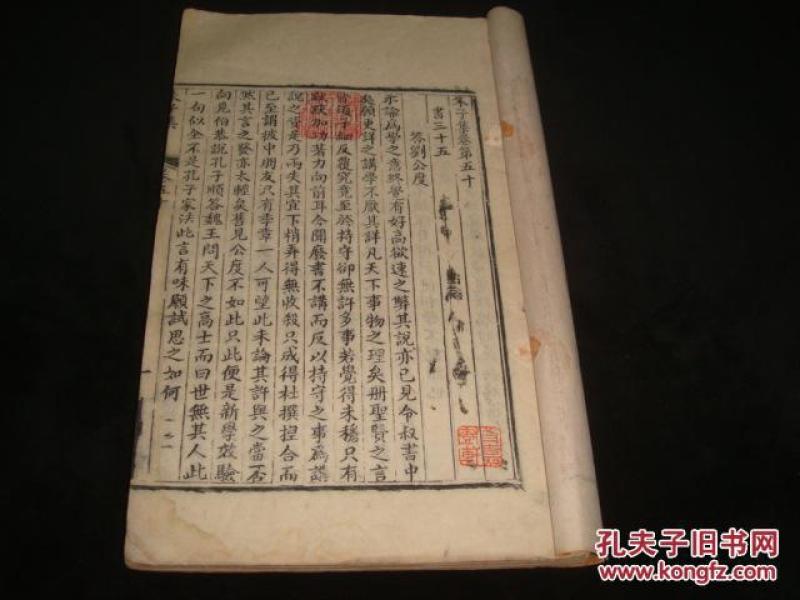 朱子集卷第五十
書二十五
答劉公度
示諭爲學之意終覺有好高欲速之弊其說亦已見令叔書中
矣願更詳之講學不厭其詳凡天下事物之理方冊聖賢之言
皆須子細反覆究竟至於持守卻無許多事若覺得未穩只有
默默加功著力向前耳今聞廢書不講而反以持守之事爲講
說之資是乃兩失其宜下梢弄得無收殺只成得杜撰捏合而
已至謂彼中朋友只有季章一人可望此未論其許與之當否
然其言之發亦太輕矣舊見公度不如此只此便是新學效驗
向見伯恭說孔子順答魏王問天下之高士而曰世無其人此
一句似全不是孔子家法此言有味願試思之如何
孔夫子旧书网
www.kongfz.com